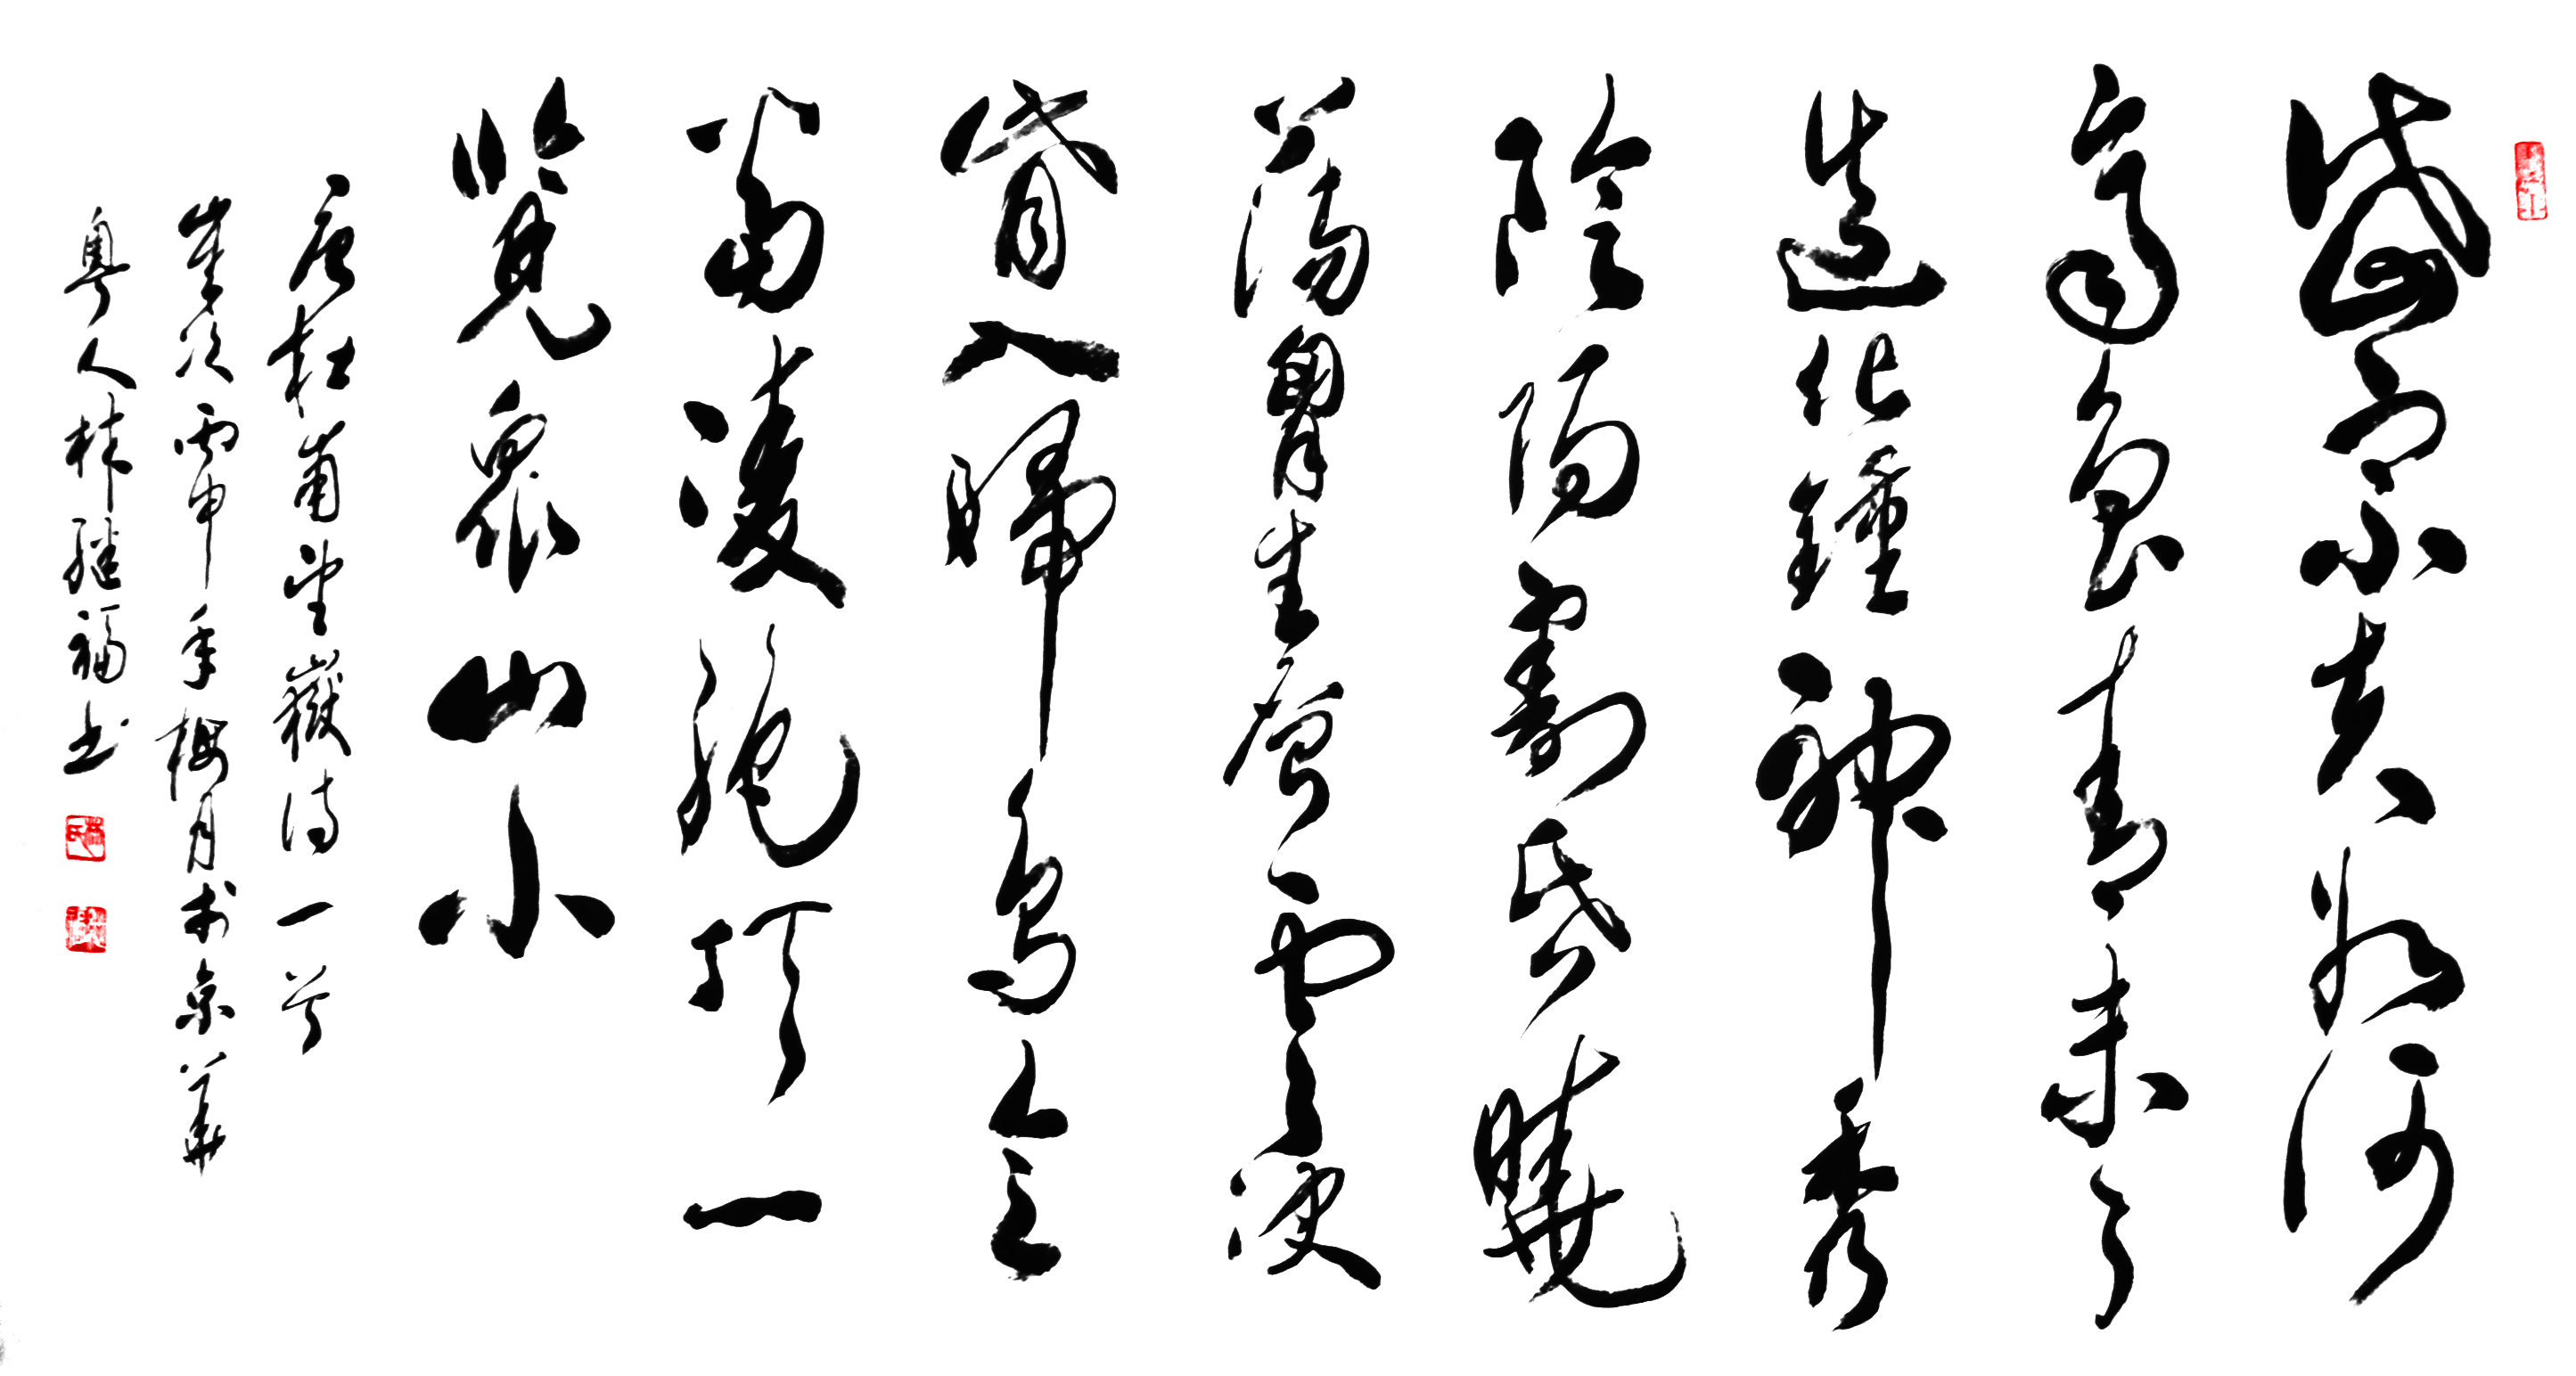 岱宗夫如何
齊魯青未了
造化鍾神秀
陰陽割昏曉
蕩胷生層雲决
眥入歸鳥會
當凌絕頂一
覽眾山小
唐杜甫望嶽詩一首
歲次丙申年梅月於京華
粵人林継福书